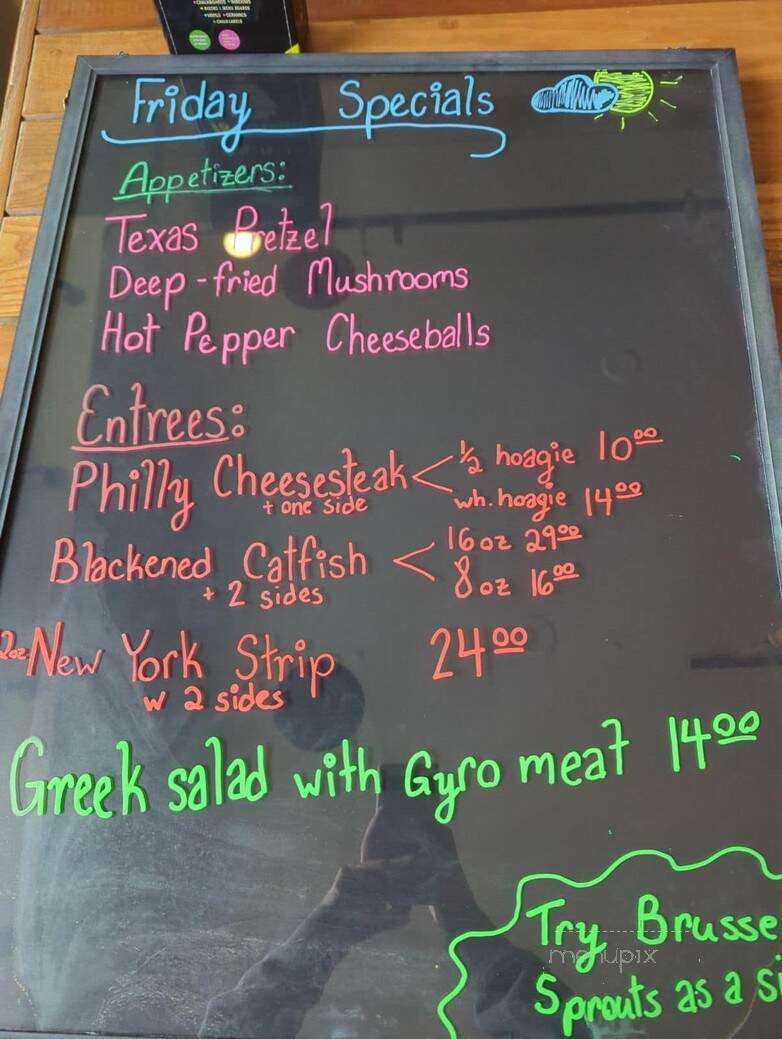 Friday Specials
Appetizers:
Texas Pretzel
Deep-fried Mushrooms
Hot Pepper Cheeseballs
Entrees:
Philly Cheesesteak < ½ hoagie 10⁰⁰
+ one side wh. hoagie 14⁰⁰
Blackened Catfish < 16 oz 29⁰⁰
+ 2 sides 8 oz 16⁰⁰
2oz New York Strip 24⁰⁰
w 2 sides
Greek salad with Gyro meat 14⁰⁰
Try Brusse
menupix
Sprouts as a si